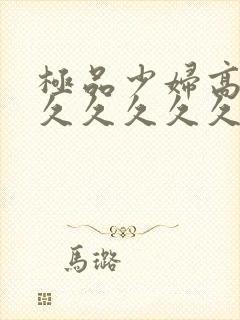 極品少婦高
久久久久久
馬璐